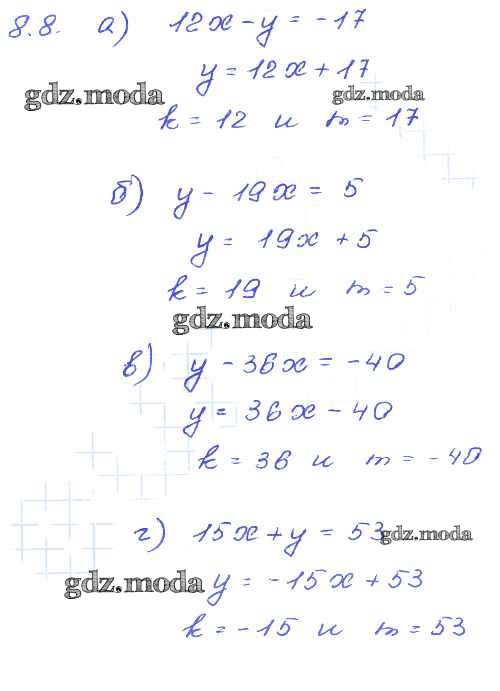 8.8. а) 12x - y = -17
y = 12x + 17
gdz.moda gdz.moda
k = 12 и m = 17
б) y - 19x = 5
y = 19x + 5
k = 19 и m = 5
gdz.moda
в) y - 36x = -40
y = 36x - 40
k = 36 и m = -40
г) 15x + y = 53
gdz.moda
gdz.moda y = -15x + 53
k = -15 и m = 53